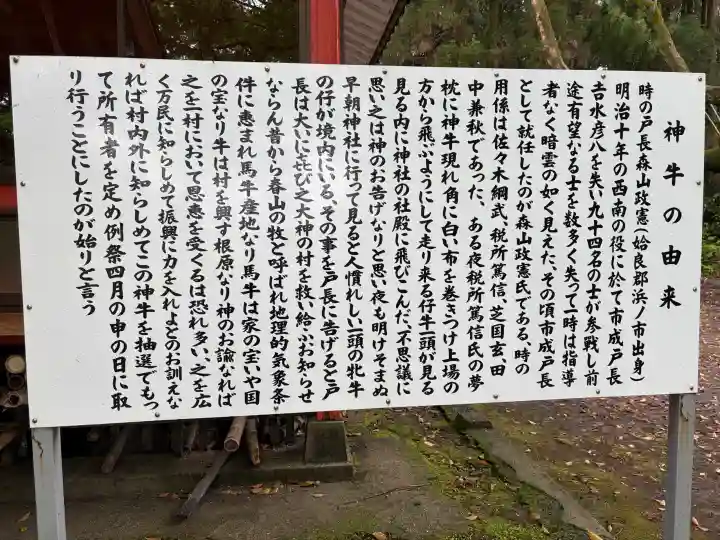 神牛の由来
時の戸長森山政憲(姶良郡浜ノ市出身)
明治十年の西南の役に於て市成戸長
吉水彦八を失い九十四名の士が参戦し前
途有望なる士を数多く失って一時は指導
者なく暗雲の如く見えた、その頃市成戸長
として就任したのが森山政憲氏である、時の
用係は佐々木綱武、税所篤信、芝国玄田
中兼秋であった、ある夜税所篤信氏の夢
枕に神牛現れ角に白い布を巻きつけ上場の
方から飛ぶようにして走り来る仔牛一頭が見る
見る内に神社の社殿に飛びこんだ、不思議に
思い之は神のお告げなりと思い夜も明けそまぬ
早朝神社に行って見ると人慣れしい一頭の牝牛
の仔が境内にいる、その事を戸長に告げると戸
長は大いに㐂び之大神の村を救い給ふお知らせ
ならん昔から春山の牧と呼ばれ地理的気象条
件に恵まれ馬牛産地なり馬牛は家の宝いや国
の宝なり牛は村を興す根原なり神のお諭なれば
之を一村において恩恵を受くるは恐れ多い、之を広
く万民に知らしめて振興に力を入れよとのお訓えな
れば村内外に知らしめてこの神牛を抽選でもっ
て所有者を定め例祭四月の申の日に取
り行うことにしたのが始りと言う